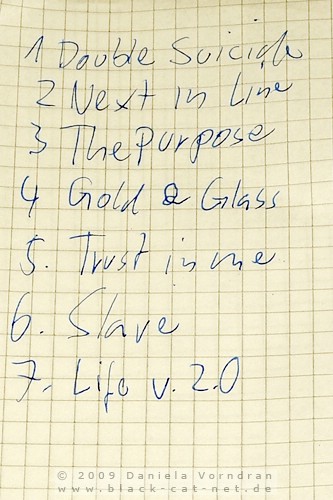 1 Double Suicide
2 Next in Line
3 The Purpose
4 Gold & Glass
5. Trust in me
6. Slave
7. Life v. 2.0
© 2009 Daniela Vorndran
www.black-cat-net.de